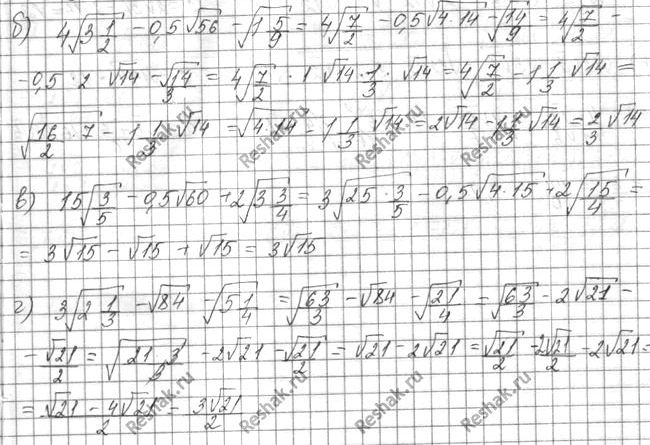 б) 4√(3 1/2) - 0,5√56 - √(1 5/9) = 4√(7/2) - 0,5√(4·14) - √(14/9) = 4√(7/2) -
- 0,5·2·√14 - √14/3 = 4√(7/2) · 1 √14 · 1/3 · √14 = 4√(7/2) - 1 1/3 √14 =
√(16/2 · 7) - 1 1/3 √14 = √(4·14) - 1 1/3 √14 = 2√14 - 1 1/3 √14 = 2/3 √14
в) 15√(3/5) - 0,5√60 + 2√(3 3/4) = 3√(25·3/5) - 0,5√(4·15) + 2√(15/4) =
= 3√15 - √15 + √15 = 3√15
г) 3√(2 1/3) - √84 - √(5 1/4) = √(63/3) - √84 - √(21/4) = √(63/3) - 2√21 -
- √21/2 = √(21·3/3) - 2√21 - √21/2 = √21 - 2√21 = √21/2 - 2√21/2 - 2√21 =
= √21 - 4√21/2 = 3√21/2
Reshak.ru
Reshak.ru
Reshak.ru
Reshak.ru
Reshak.ru
Reshak.ru